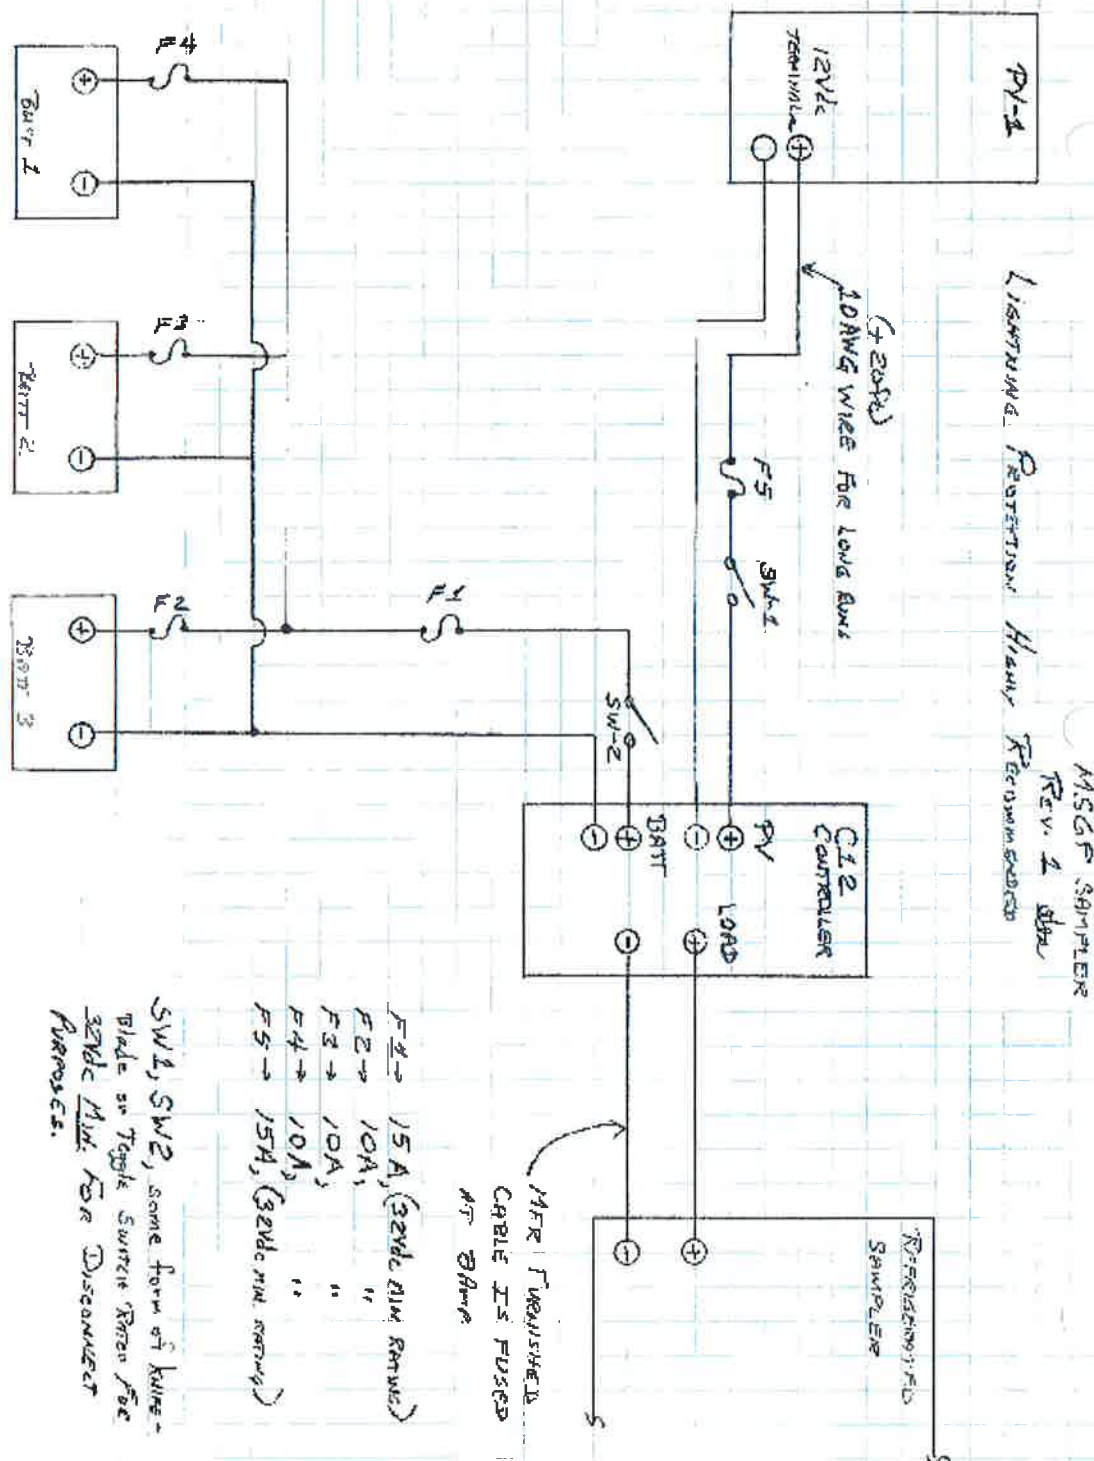 MSGF SAMPLER
REV. 1
LIGHTNING PROTECTION HIGHLY RECOMMENDED
PV-1
12Vdc
TERMINALS
+
(+ 20ft)
10AWG WIRE FOR LONG RUNS
F5
SW-1
C12
CONTROLLER
PV
+
-
BATT
+
-
LOAD
+
-
REFRIGERATED
SAMPLER
+
-
MFR FURNISHED
CABLE IS FUSED
AT 8Amp
F4
+
-
BATT 1
F3
+
-
BATT 2
F2
F1
SW-2
+
-
BATT 3
F1→ 15A, (32Vdc MIN RATING)
F2→ 10A, "
F3→ 10A, "
F4→ 10A, "
F5→ 15A, (32Vdc MIN. RATING)
SW1, SW2, some form of KNIFE-
Blade or Toggle SWITCH RATED FOR
32Vdc MIN. FOR DISCONNECT
PURPOSES.